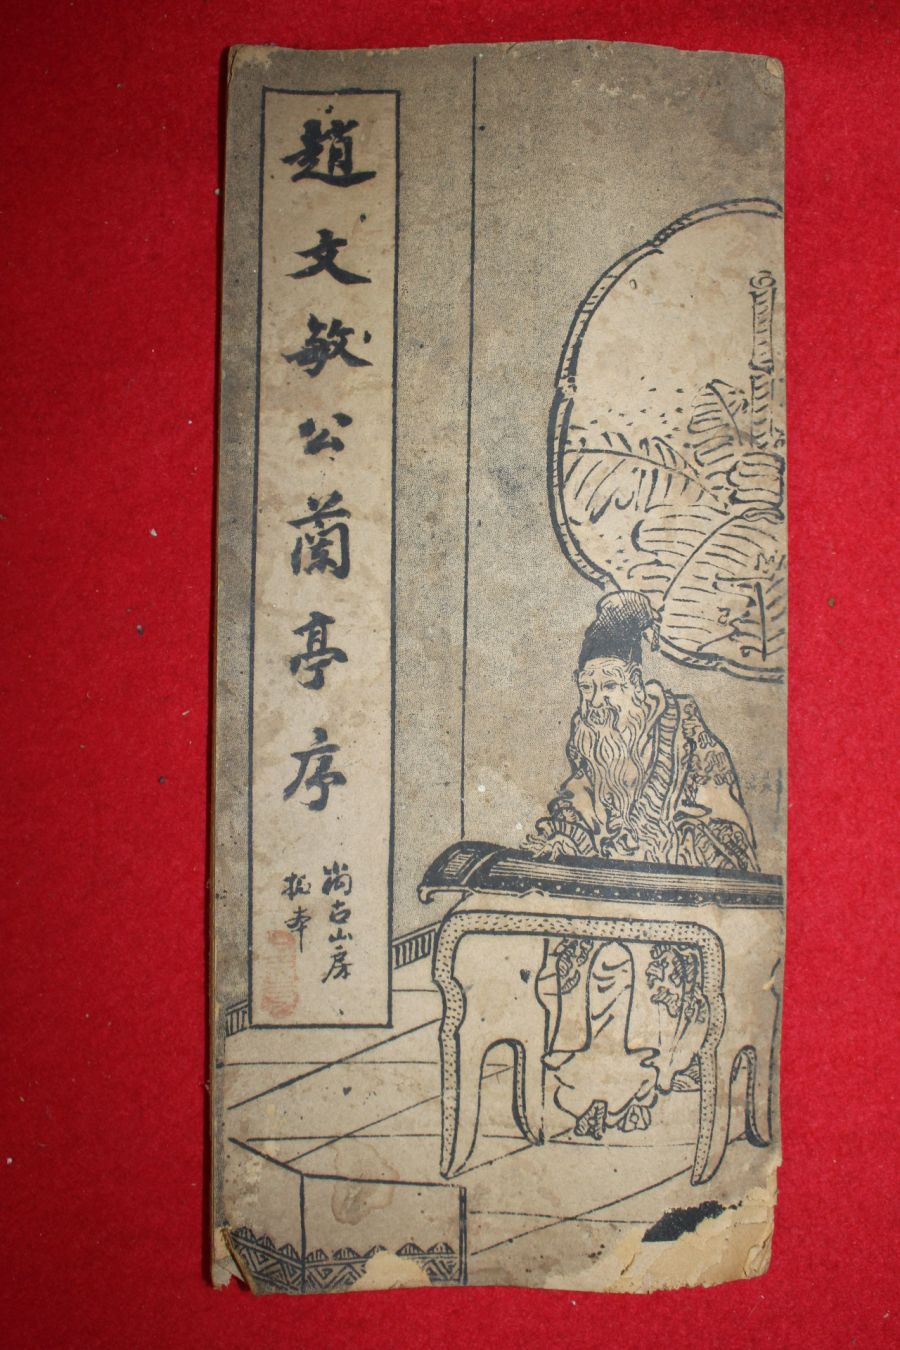 趙文敏公蘭亭序
尚古山房
拓本